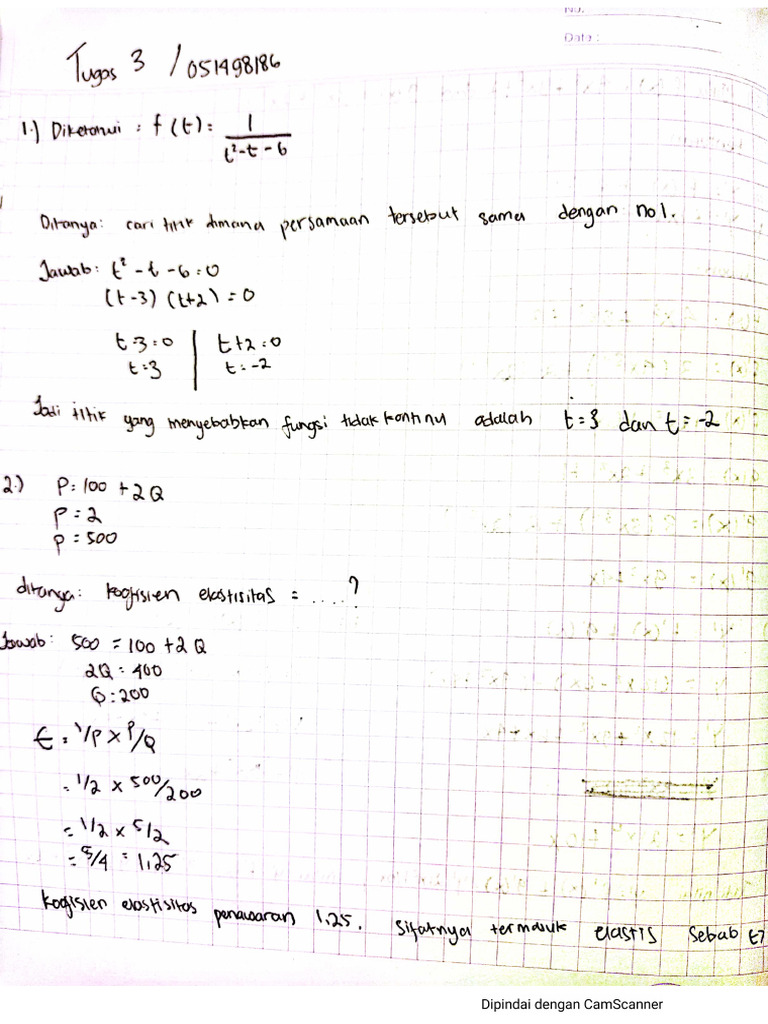 No.
Date :
Tugas 3 / 051498186
1.) Diketahui : f(t) = 1 / t²-t-6
Ditanya: cari titik dimana persamaan tersebut sama dengan nol.
Jawab: t² - t - 6 = 0
(t-3) (t+2) = 0
t-3=0 | t+2=0
t=3 | t=-2
Jadi titik yang menyebabkan fungsi tidak kontinu adalah t=3 dan t=-2
2.) P=100 + 2Q
P = 2
P = 500
ditanya: koefisien elastisitas = ....?
Jawab: 500 = 100 + 2Q
2Q = 400
Q = 200
E = 1/P x P/Q
= 1/2 x 500/200
= 1/2 x 5/2
= 5/4 = 1,25
koefisien elastisitas penawaran 1,25. Sifatnya termasuk elastis sebab E>
Dipindai dengan CamScanner